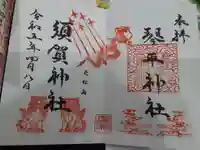 奉拝
琴平神社
須賀神社
令和五年四月八日